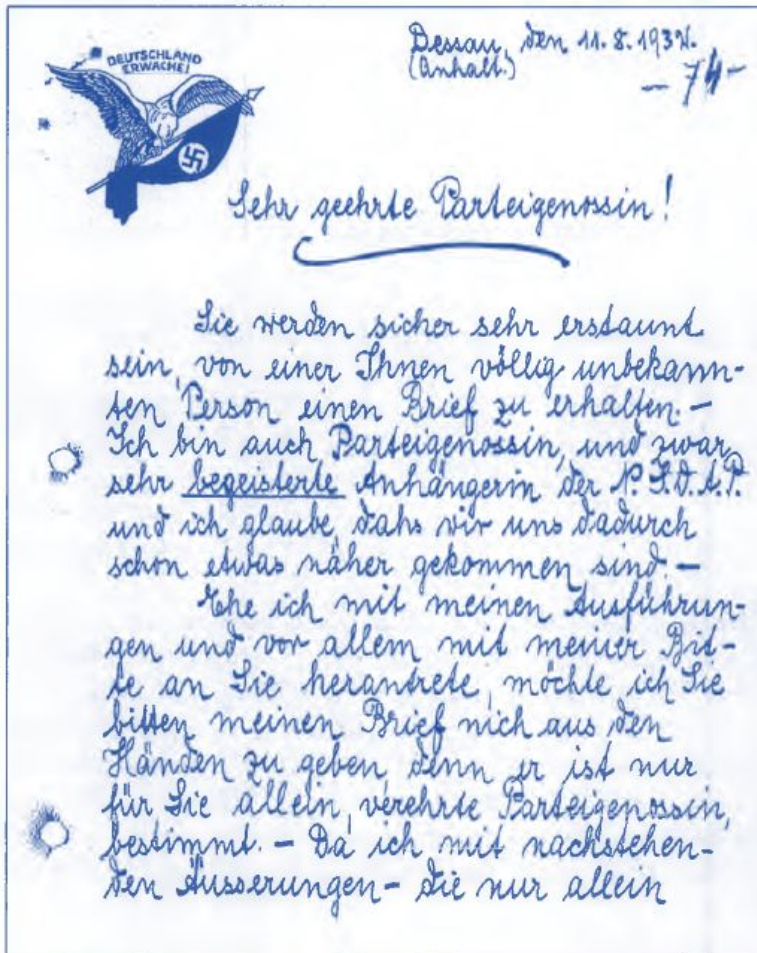 DEUTSCHLAND
ERWACHE!
Dessau, den 11. 8. 1932.
(Anhalt.)
- 74 -
Sehr geehrte Parteigenossin!
Sie werden sicher sehr erstaunt
sein, von einer Ihnen völlig unbekann-
ten Person einen Brief zu erhalten. -
Ich bin auch Parteigenossin, und zwar
sehr begeisterte Anhängerin der N.S.D.A.P.
und ich glaube, dahs wir uns dadurch
schon etwas näher gekommen sind. -
Ehe ich mit meinen Ausführun-
gen und vor allem mit meiner Bit-
te an Sie herantrete, möchte ich Sie
bitten meinen Brief nich aus den
Händen zu geben, denn er ist nur
für Sie allein, verehrte Parteigenossin,
bestimmt. - Da ich mit nachstehen-
den Äusserungen - die nur allein